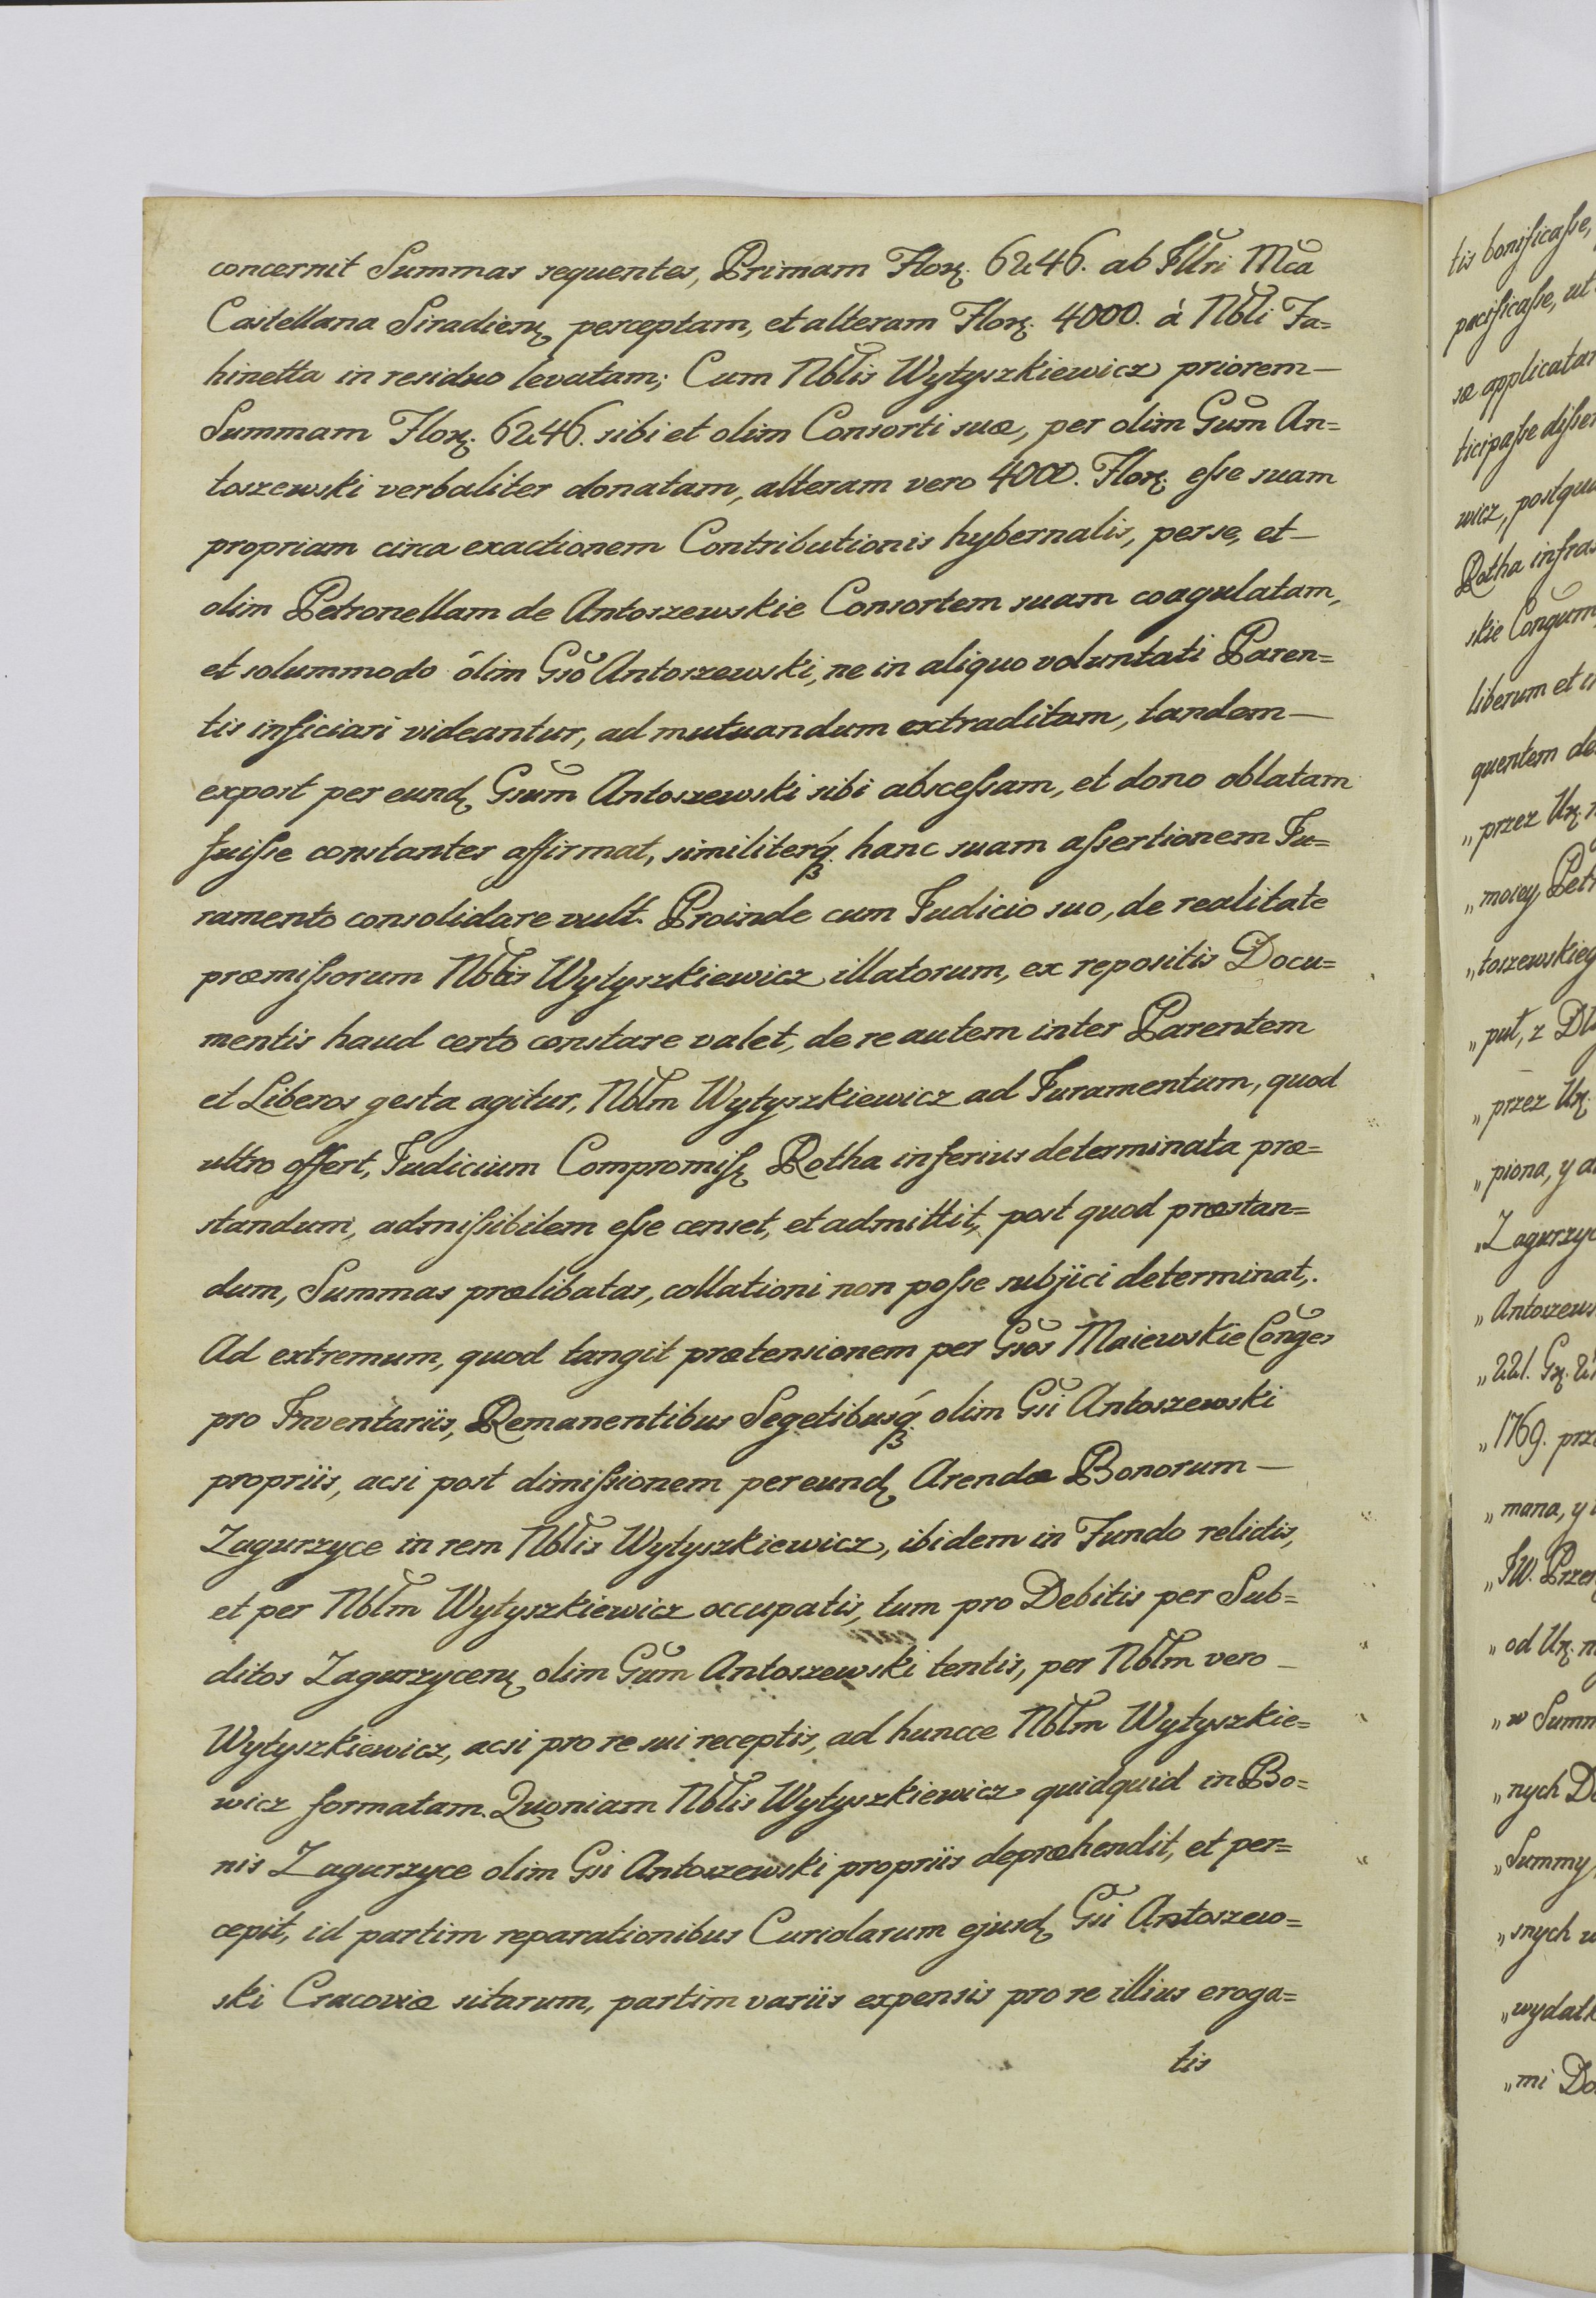 concernit Summas sequentes, Primam Flor. 6246. ab Illri Mca
Castellana Siradien. perceptam, et alteram Flor. 4000. à Nbli Ja=
hinetta in residuo levatam; Cum Nblis Wytyszkiewicz priorem —
Summam Flor. 6246. sibi et olim Consorti suæ, per olim Gsum An=
toszewski verbaliter donatam, alteram vero 4000. Flor. eſse suam
propriam circa exactionem Contributionis hybernalis, per se, et —
olim Petronellam de Antoszewskie Consortem suam coagulatam,
et solummodo ólim Gso Antoszewski, ne in aliquo voluntati Paren=
tis inficiari videantur, ad mutuandum extraditam, tandem —
expost per eund. Gsum Antoszewski sibi absceſsam, et dono oblatam
fuiſse constanter affirmat, similiterq́. hanc suam aſsertionem Ju=
ramento consolidare vult. Proinde cum Judicio suo, de realitate
præmiſsorum Nblis Wytyszkiewicz illatorum, ex repositis Docu=
mentis haud certo constare valet, de re autem inter Parentem
et Liberos gesta agitur, Nblm Wytyszkiewicz ad Juramentum, quod
ultro offert, Judicium Compromiſs. Rotha inferius determinata præ=
standum, admiſsibilem eſse censet, et admittit, post quod præstan=
dum, Summas prælibatas, collationi non poſse subjici determinat,.
Ad extremum, quod tangit prætensionem per Gsos Maiewskie Conges
pro Inventariis, Remanentibus Segetibusq́. olim Gsi Antoszewski
propriis, acsi post dimiſsionem per eund. Arendæ Bonorum —
Zagurzyce in rem Nblis Wytyszkiewicz, ibidem in Fundo relictis,
et per Nblm Wytyszkiewicz occupatis, tum pro Debitis per Sub=
ditos Zagurzycen. olim Gsum Antoszewski tentis, per Nblm vero —
Wytyszkiewicz, acsi pro re sui receptis, ad huncce Nblm Wytyszkie=
wicz formatam. Quoniam Nblis Wytyszkiewicz quidquid in Bo=
nis Zagurzyce olim Gsi Antoszewski propriis depræhendit, et per=
cepit, id partim reparationibus Curiolarum ejusd. Gsi Antoszew=
ski Cracoviæ sitarum, partim variis expensis pro re illius eroga=
tis
tis bonificaſse,
pacificaſse, ut
sæ applicatam
ticipaſse
wicz,
Rotha
skie Congum
liberum et
quentem
„ przez Ur.
„ mosey
„ toszewskieg
„ put, z
„ przez Ur.
„ piona, y
„ Zagurzyc
„ Antoszews
„ 221. Gr.
„ 1769. prz
„ mana, y
„ JW.
„ od Ur.
„ w Summ
„ nych
„ Summy
„ snych
„ wydatk
„ mi